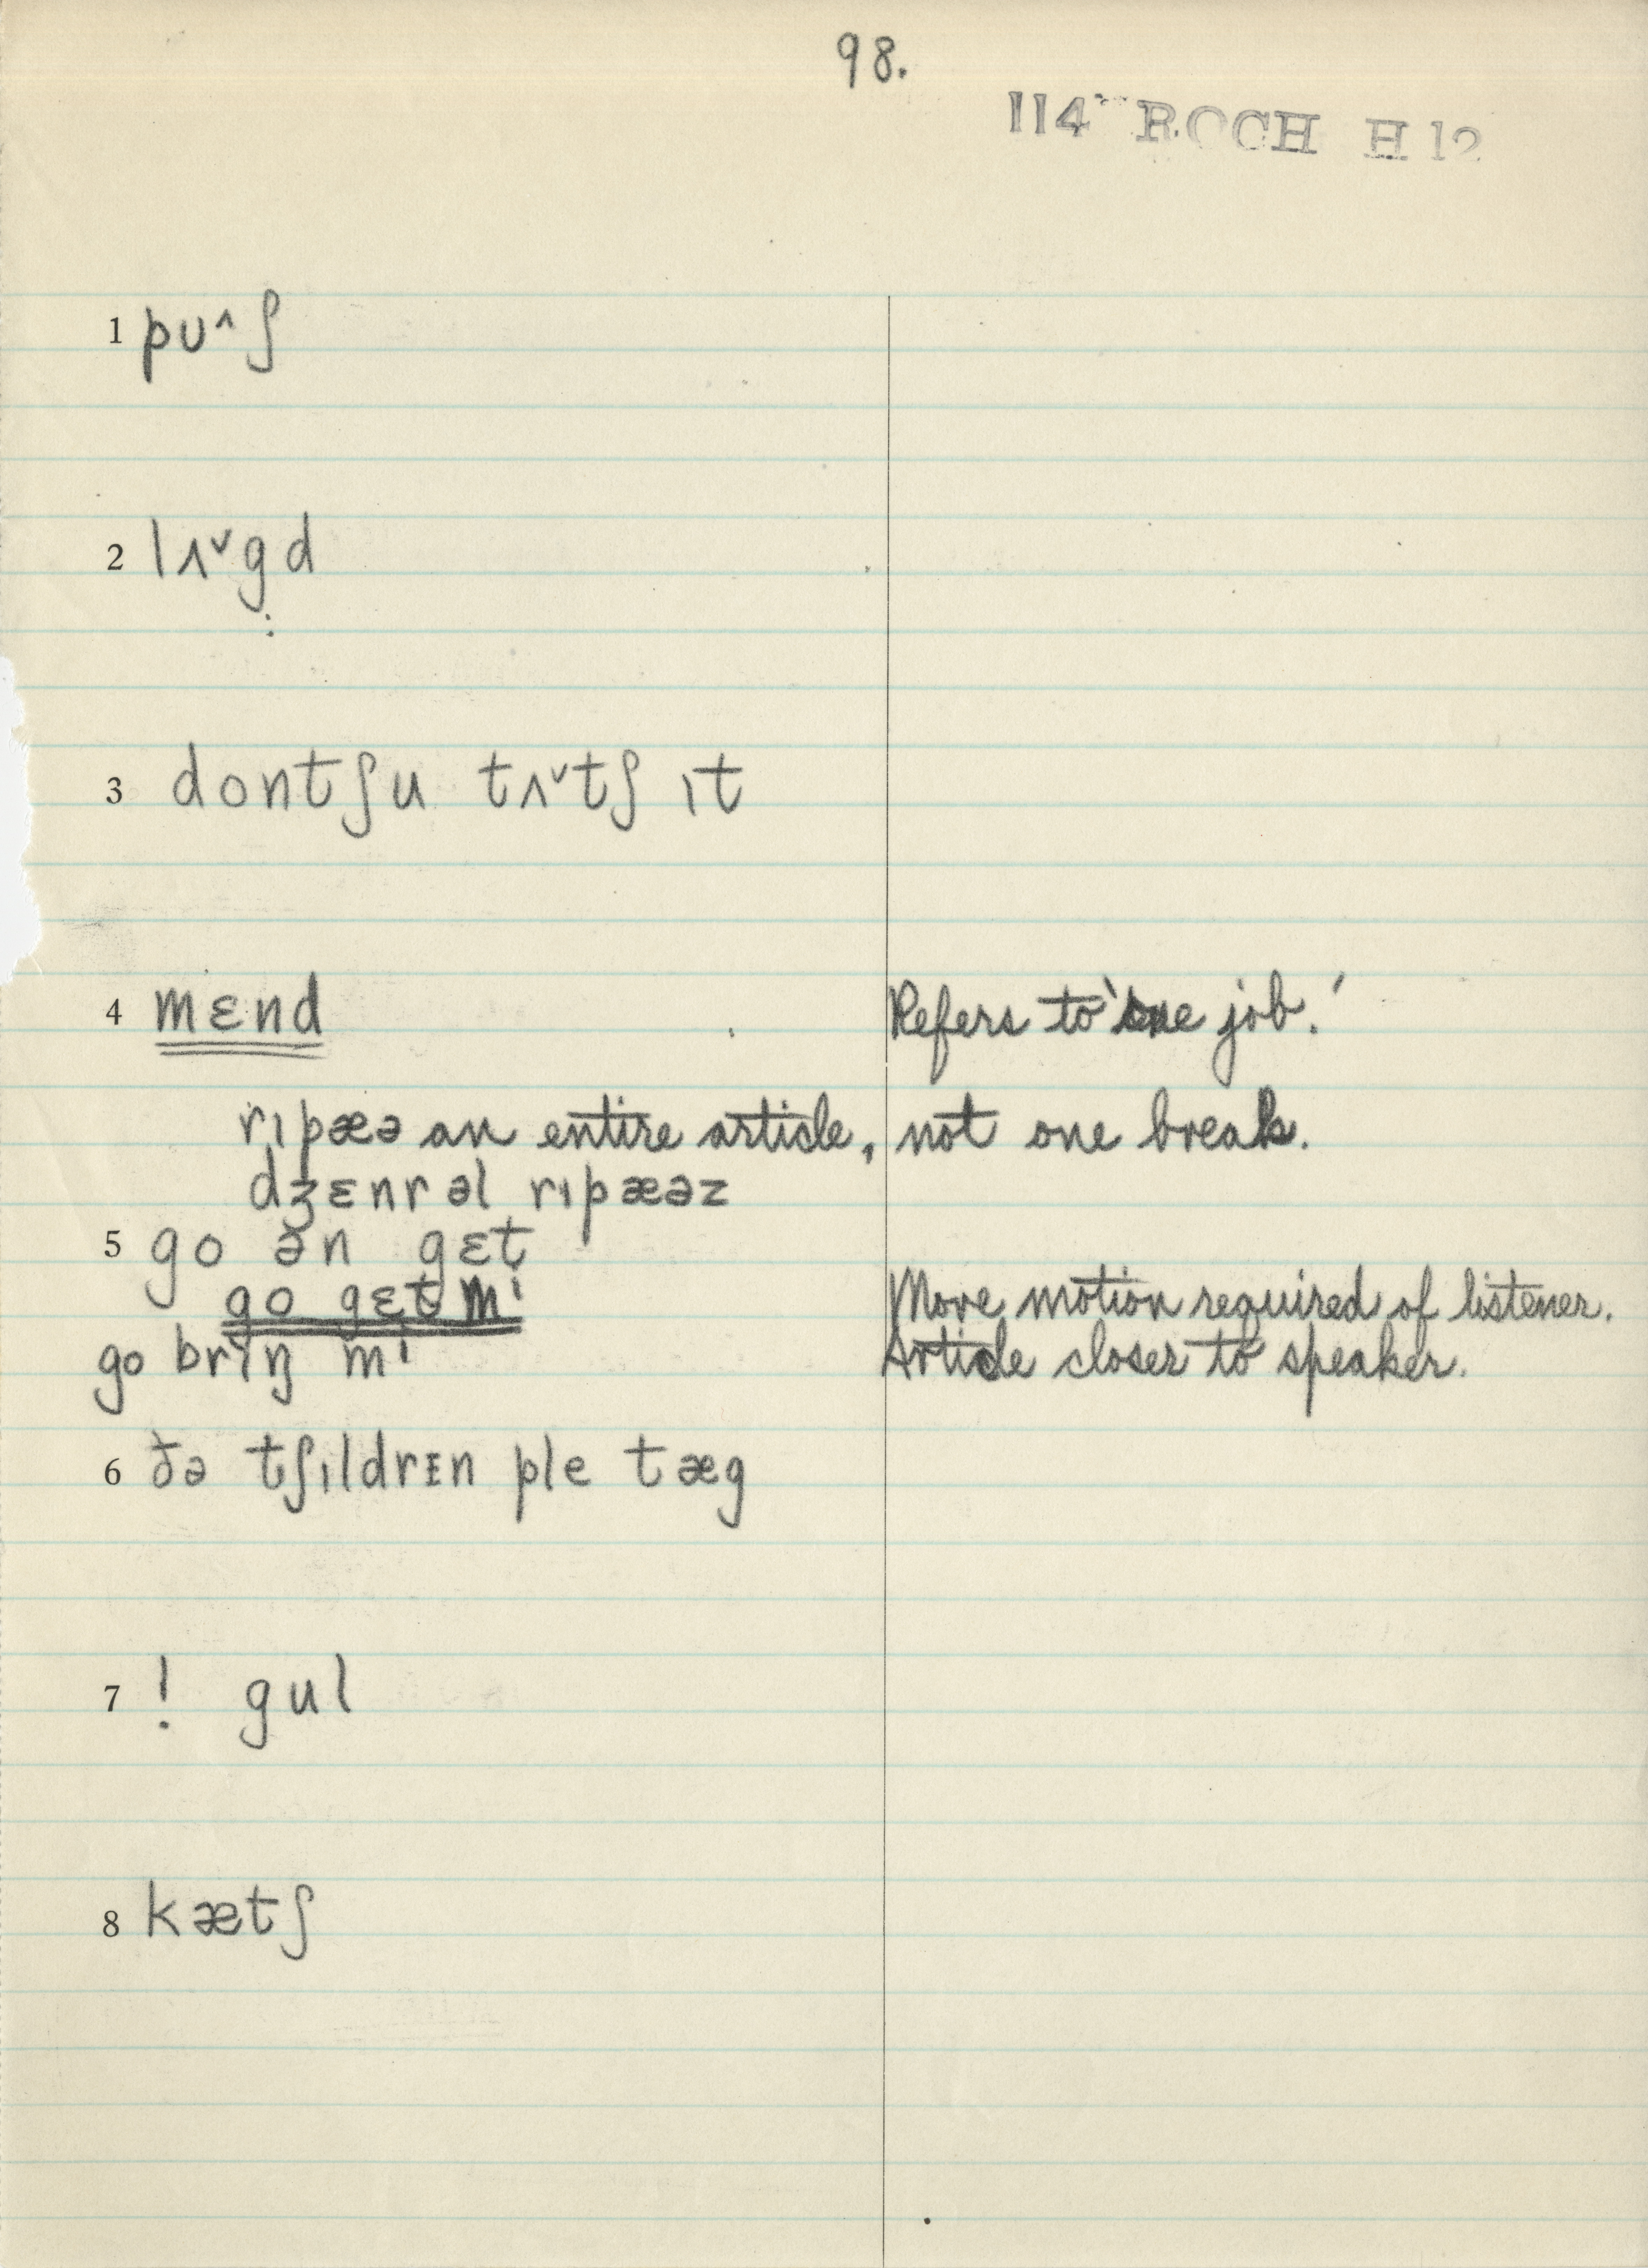 98.
114 ROCH H 12
1 pu^ʃ
2 lʌˇg̣d
3 dontʃu tʌˇtʃ ɪt
4 mɛnd Refers to 'one job.'
rɪpæə an entire article, not one break.
dʒɛnrəl rɪpæəz
5 go ən gɛt
go gɛt mi More motion required of listener.
go brɪŋ mi Article closer to speaker.
6 ðə tʃɪldrɪn ple tæg
7 ! gul
8 kætʃ